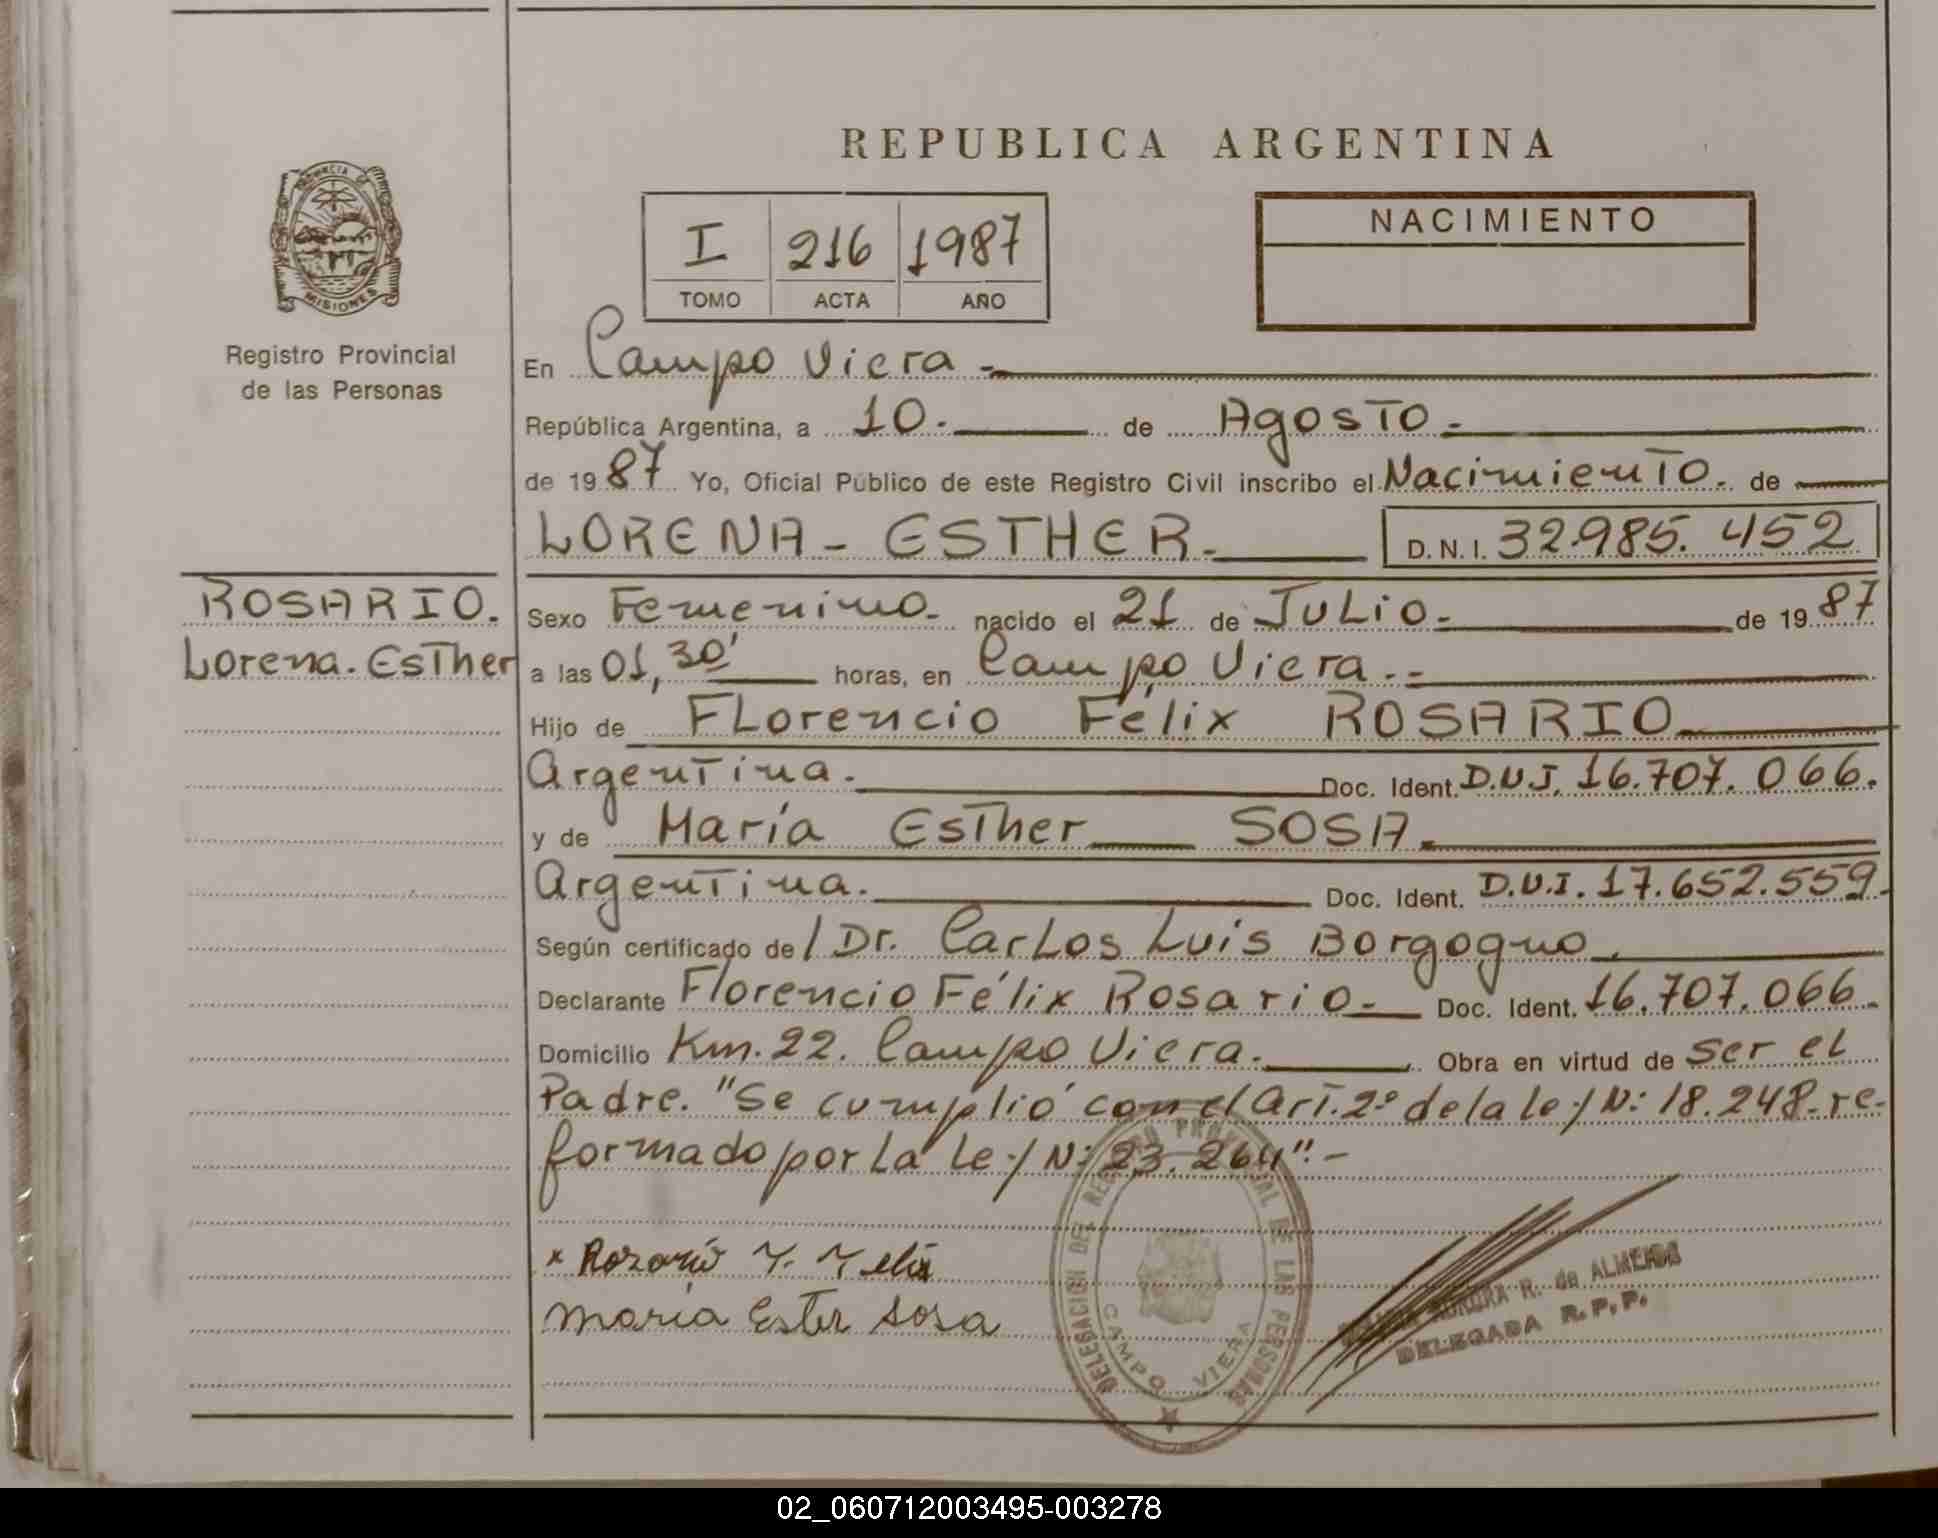 REPUBLICA ARGENTINA
PROVINCIA DE
MISIONES
Registro Provincial
de las Personas
I 216 1987
TOMO ACTA AÑO
NACIMIENTO
En Campo Viera -
República Argentina, a 10. de Agosto.-
de 1987 Yo, Oficial Público de este Registro Civil inscribo el Nacimiento. de
LORENA - ESTHER. D.N.I. 32.985.452
ROSARIO.
Lorena. Esther
Sexo Femenino. nacido el 21 de Julio.- de 1987
a las 01,30' horas, en Campo Viera.-
Hijo de Florencio Félix ROSARIO
Argentina. Doc. Ident. D.N.I. 16.707.066.
y de María Esther SOSA.
Argentina. Doc. Ident. D.N.I. 17.652.559.
Según certificado de / Dr. Carlos Luis Borgogno.
Declarante Florencio Félix Rosario.- Doc. Ident. 16.707.066.
Domicilio Km. 22. Campo Viera. Obra en virtud de ser el
Padre. "Se cumplió con el Art. 2º de la Ley Nº 18.248-re-
formado por la Ley Nº 23.264".-
x Rosario F. Felix
Maria Ester Sosa
DELEGACION DEL REGISTRO PROVINCIAL DE LAS PERSONAS
CAMPO VIERA
R. de ALMEIDA
DELEGADA R.P.P.
02_060712003495-003278